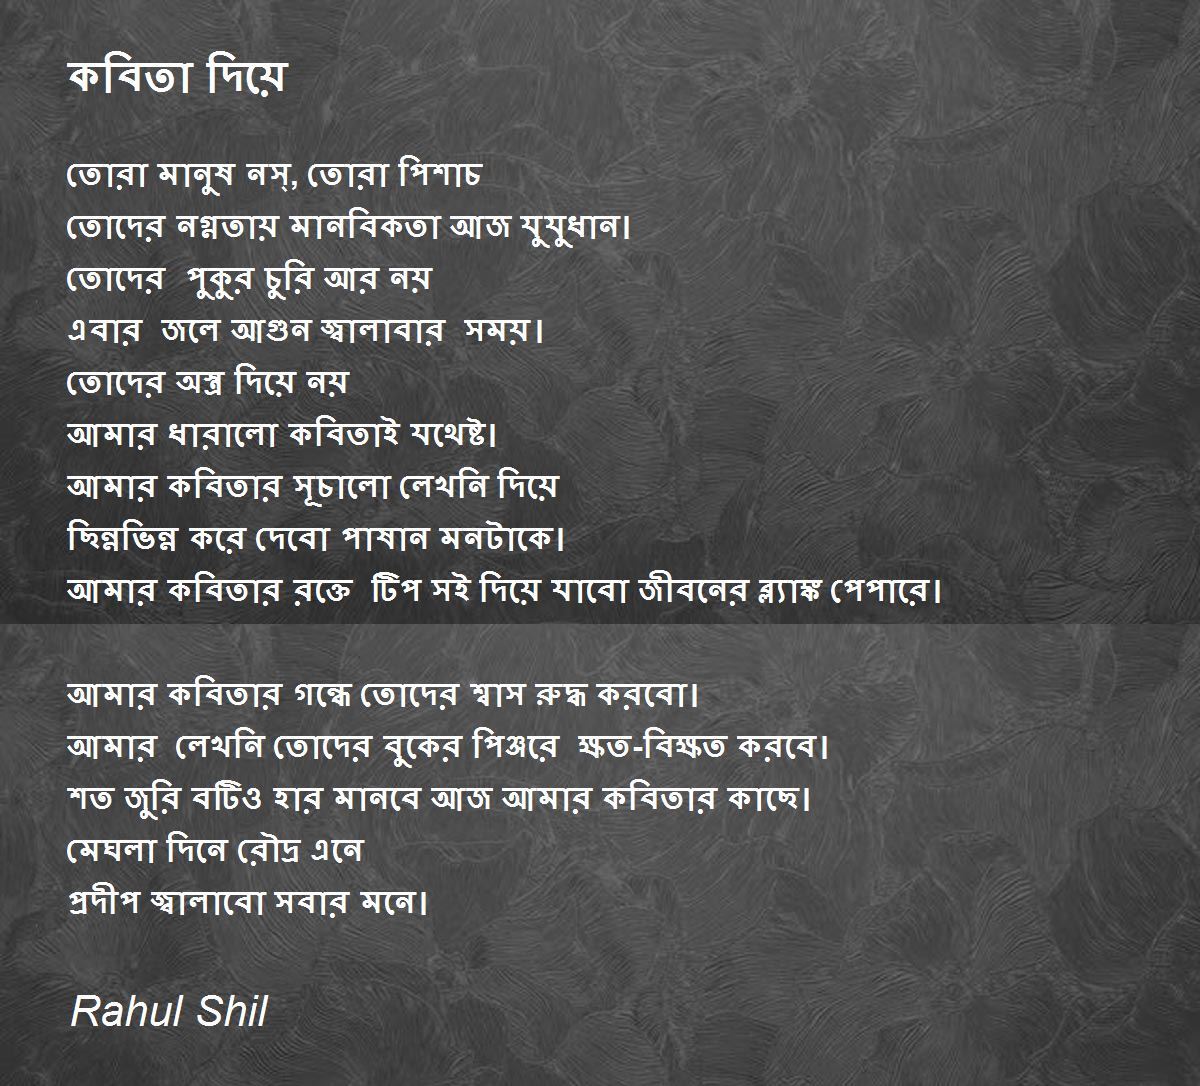 কবিতা দিয়ে
তোরা মানুষ নস্, তোরা পিশাচ
তোদের নগ্নতায় মানবিকতা আজ যুযুধান।
তোদের পুকুর চুরি আর নয়
এবার জলে আগুন জ্বালাবার সময়।
তোদের অস্ত্র দিয়ে নয়
আমার ধারালো কবিতাই যথেষ্ট।
আমার কবিতার সূচালো লেখনি দিয়ে
ছিন্নভিন্ন করে দেবো পাষান মনটাকে।
আমার কবিতার রক্তে টিপ সই দিয়ে যাবো জীবনের ব্ল্যাঙ্ক পেপারে।
আমার কবিতার গন্ধে তোদের শ্বাস রুদ্ধ করবো।
আমার লেখনি তোদের বুকের পিঞ্জরে ক্ষত-বিক্ষত করবে।
শত জুরি বটিও হার মানবে আজ আমার কবিতার কাছে।
মেঘলা দিনে রৌদ্র এনে
প্রদীপ জ্বালাবো সবার মনে।
Rahul Shil